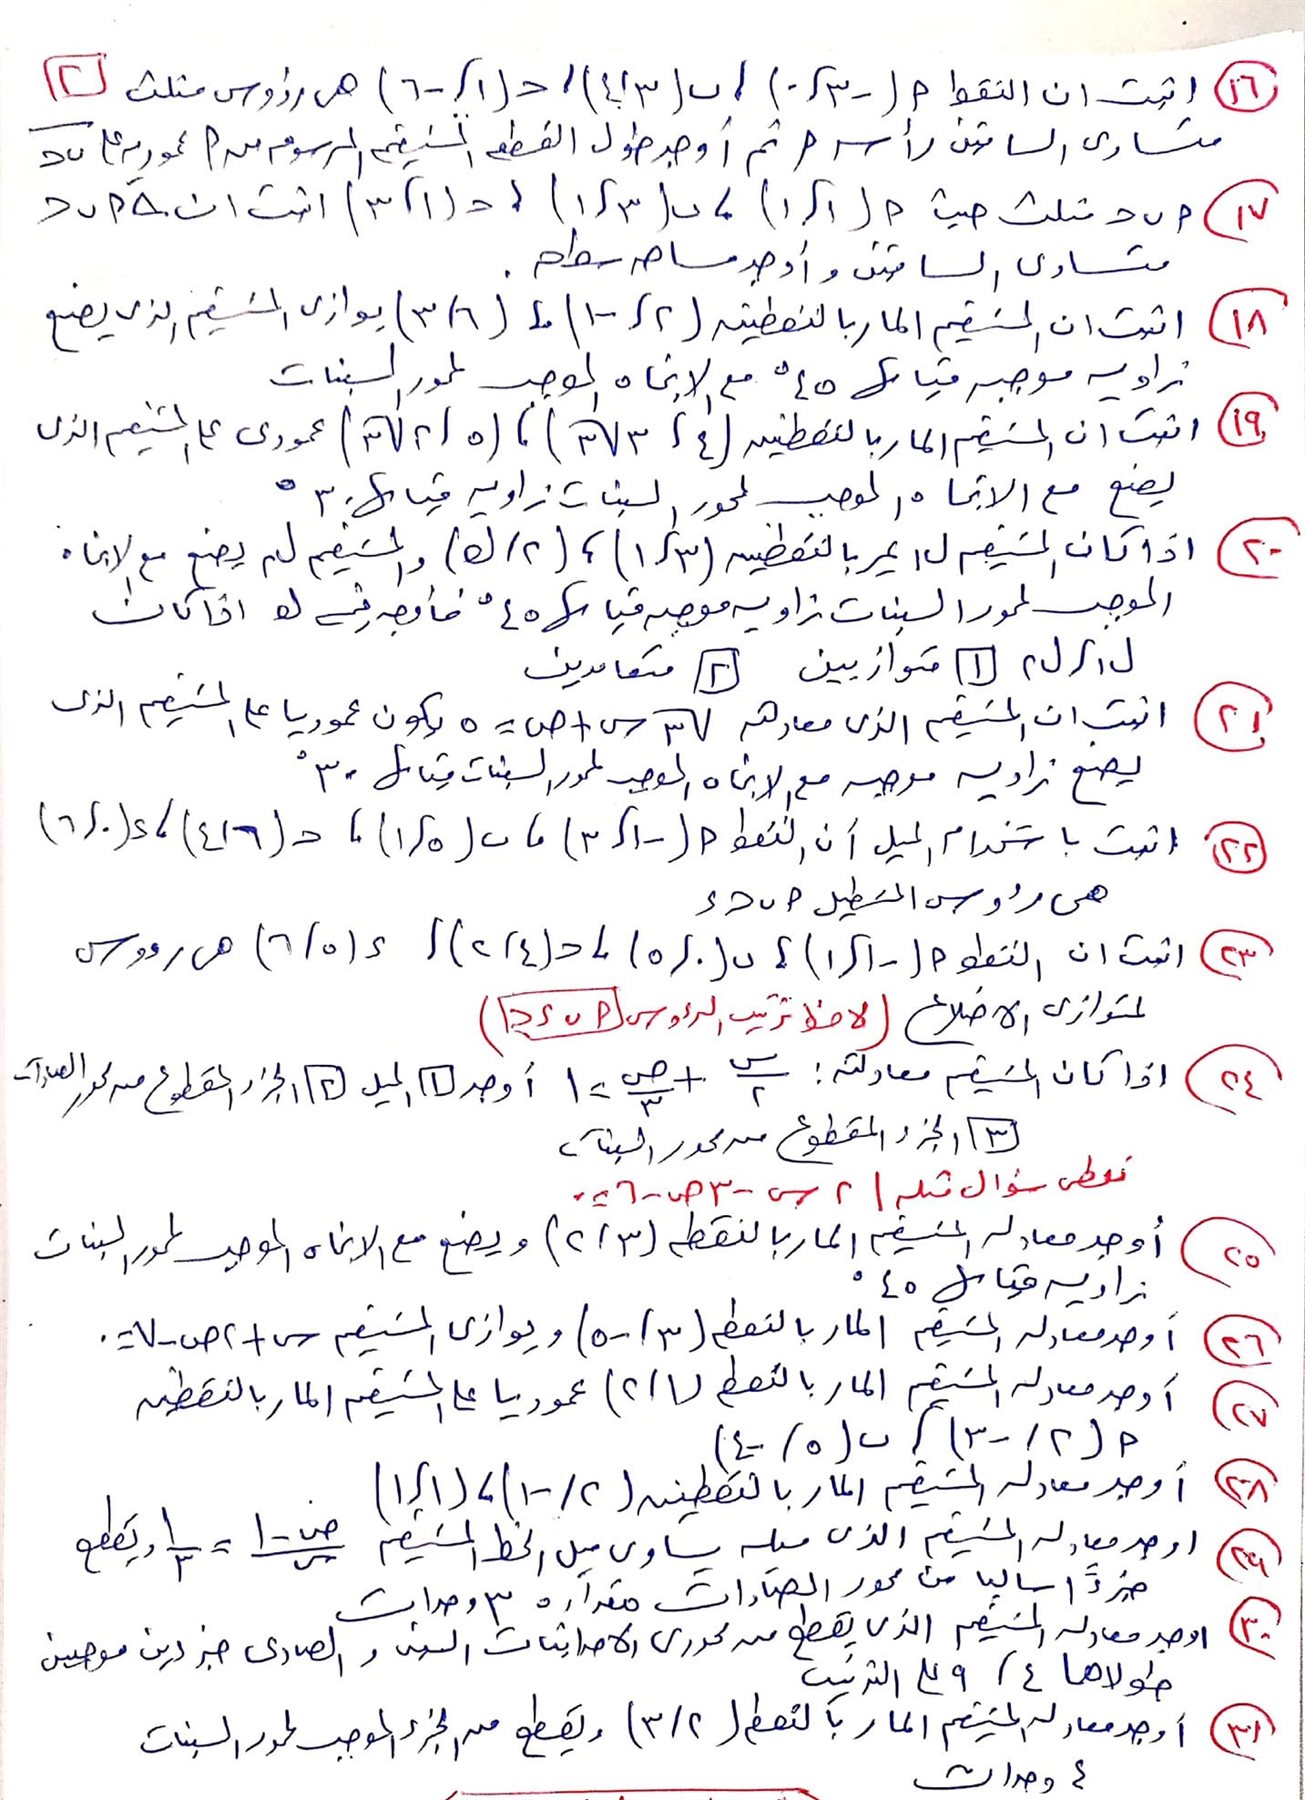 ١٦ اثبت ان النقط ٢ (-٣، ٠) ، ب(٣، ٤) ، حـ(١، -٦) هى رؤوس مثلث ٢
متساوى الساقين رأسه ٢ ثم أوجد طول القطعه المستقيمه المرسومه من ٢ عموديه على ب حـ
١٧ ٢ ب حـ مثلث حيث ٢ (١، ١) ، ب(٣، ١) ، حـ(١، ٣) اثبت ان △ ٢ ب حـ
متساوى الساقين وأوجد مساحه سطحه .
١٨ اثبت ان المستقيم المار بالنقطتين (٢، -١) ، (٦، ٣) يوازى المستقيم الذى يصنع
زاويه موجبه قياسها ٤٥° مع الاتجاه الموجب لمحور السينات
١٩ اثبت ان المستقيم المار بالنقطتين (٤، ٣√٣) ، (٥، ٢√٣) عمودى على المستقيم الذى
يصنع مع الاتجاه الموجب لمحور السينات زاويه قياسها ٣٠°
٢٠ اذا كان المستقيم ل١ يمر بالنقطتين (٣، ١) ، (٢، ك) والمستقيم ل٢ يصنع مع الاتجاه
الموجب لمحور السينات زاويه موجبه قياسها ٤٥° فأوجد قيمه ك اذا كان
ل١، ل٢ ١ متوازيين ٢ متعامدين
٢١ اثبت ان المستقيم الذى معادلته √٣ س + ص = ٥ يكون عموديا على المستقيم الذى
يصنع زاويه موجبه مع الاتجاه الموجب لمحور السينات قياسها ٣٠°
٢٢ اثبت باستخدام الميل أن النقط ٢ (-١، ٣) ، ب(٥، ١) ، حـ(٦، ٤) ، ء(٠، ٦)
هى رؤوس المستطيل ٢ ب حـ ء
٢٣ اثبت ان النقط ٢ (-١، ١) ، ب(٠، ٥) ، حـ(٤، ٢) ، ء(٥، ٦) هى رووس
لمتوازى الاضلاع (لاحظ ترتيب الرءوس ٢ ب ء حـ)
٢٤ اذا كان المستقيم معادلته : س/٢ + ص/٣ = ١ أوجد ١ الميل ٢ الجزء المقطوع من محور الصادات
٣ الجزء المقطوع من محور السينات
نفس سؤال قبله / ٢ س - ٣ ص - ٦ = ٠
٢٥ أوجد معادله المستقيم المار بالنقطه (٣، ٢) ويصنع مع الاتجاه الموجب لمحور السينات
زاويه قياسها ٤٥°
٢٦ أوجد معادله المستقيم المار بالنقطه (٣، -٥) ويوازى المستقيم س + ٢ص - ٧ = ٠
٢٧ أوجد معادله المستقيم المار بالنقطه (١، ٢) عموديا على المستقيم المار بالنقطتين
٢ (٢، -٣) ، ب(٥، -٤)
٢٨ أوجد معادله المستقيم المار بالنقطتين (٢، -١) ، (١، ١)
٢٩ اوجد معادله المستقيم الذى ميله يساوى ميل الخط المستقيم ص-١/س = ١/٣ ويقطع
جزءًا سالبا من محور الصادات مقداره ٣ وحدات
٣٠ اوجد معادله المستقيم الذى يقطع من محورى الاحداثيات السينى والصادى جزءين موجبين
طولاهما ٤ ، ٩ على الترتيب
٣١ أوجد معادله المستقيم المار بالنقطه (٢، ٣) ويقطع من الجزء الموجب لمحور السينات
٤ وحدات